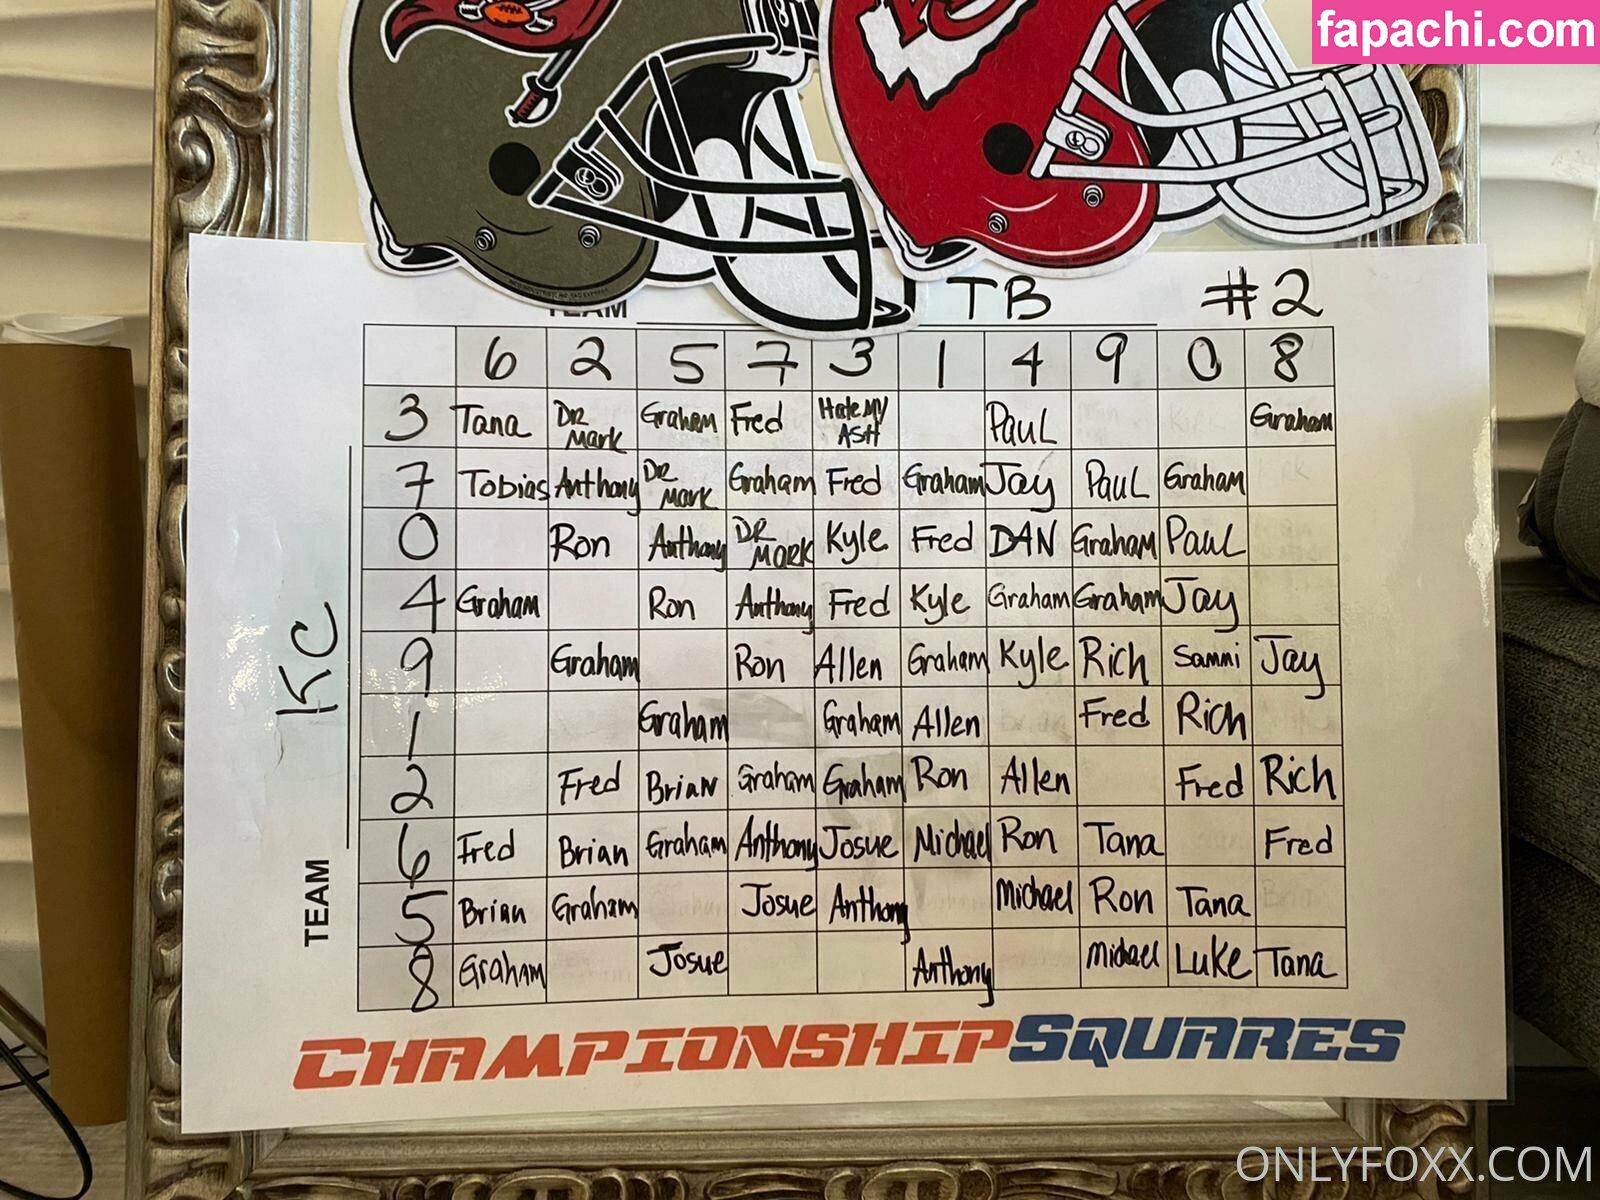 fapachi.com
TEAM TB #2
6 2 5 7 3 1 4 9 0 8
3 Tana DR MARK Graham Fred Hate My ASH PAUL Graham
7 Tobias Anthony DR MARK Graham Fred Graham Jay PAUL Graham
0 Ron Anthony DR MARK Kyle Fred DAN Graham PAUL
4 Graham Ron Anthony Fred Kyle Graham Graham Jay
9 Graham Ron Allen Graham Kyle Rich Sammi Jay
1 Graham Graham Allen Fred Rich
2 Fred Brian Graham Graham Ron Allen Fred Rich
6 Fred Brian Graham Anthony Josue Michael Ron Tana Fred
5 Brian Graham Josue Anthony Michael Ron Tana
8 Graham Josue Anthony Michael Luke Tana
TEAM KC
CHAMPIONSHIPSQUARES
ONLYFOXX.COM